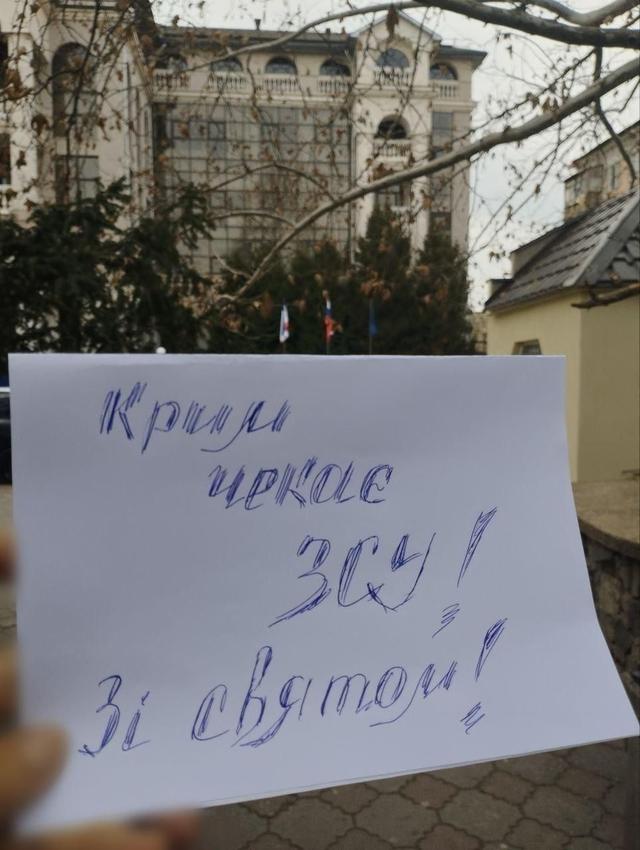 Крим
чекає
ЗСУ!
Зі святом!